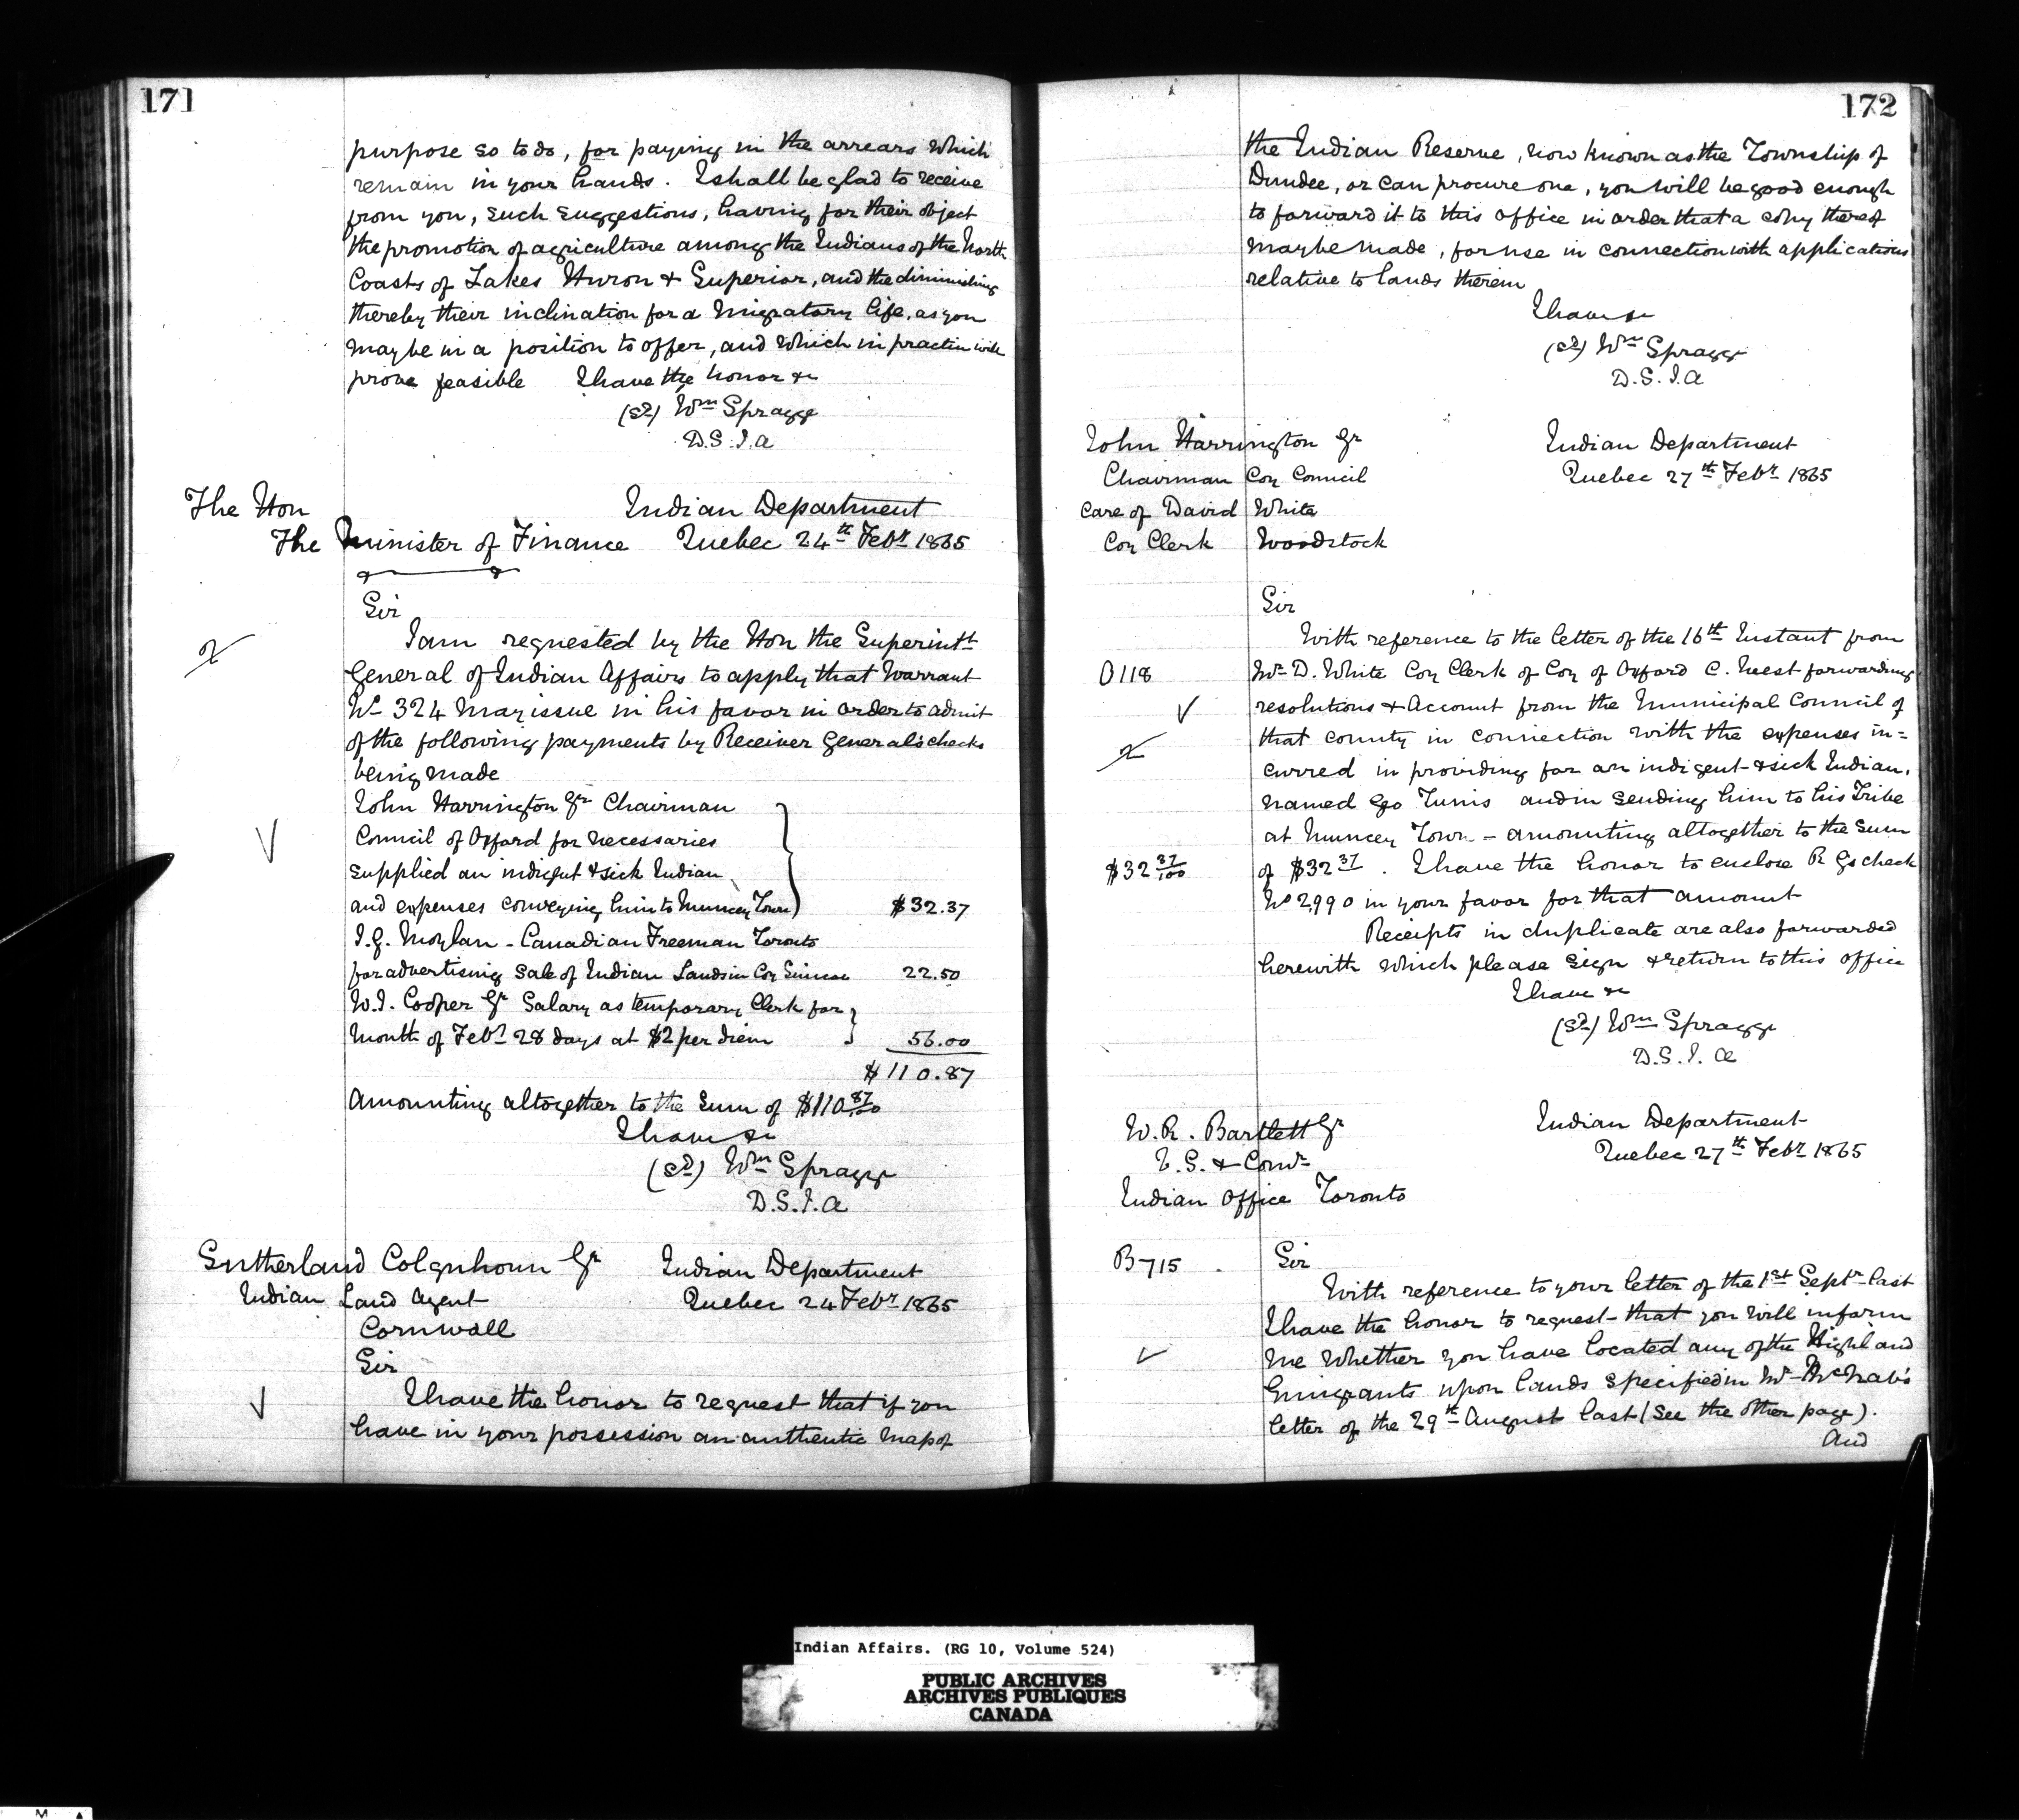 171
purpose so to do, for paying in the arrears which
remain in your hands. I shall be glad to receive
from you, such suggestions, having for their object
the promotion of agriculture among the Indians of the North
Coasts of Lakes Huron & Superior, and the diminishing
thereby their inclination for a migratory life, as you
may be in a position to offer, and which in practice will
prove feasible I have the honor &c
(sd) Wm Spragge
D.S.I.A
The Hon
The Minister of Finance
Indian Department
Quebec 24th Feby 1865
Sir
I am requested by the Hon the Superintt
General of Indian Affairs to apply that Warrant
No 324 may issue in his favor in order to admit
of the following payments by Receiver General's checks
being made
John Harrington Jr Chairman
Council of Oxford for necessaries
supplied an indigent & sick Indian
and expenses conveying him to Muncey Town $32.37
J.G. Moylan - Canadian Freeman Toronto
for advertising sale of Indian Lands in Coy Simcoe 22.50
W.J. Cooper Jr Salary as temporary Clerk for
Month of Feby 28 days at $2 per diem 56.00
$110.87
Amounting altogether to the sum of $110 87/100
I have &c
(sd) Wm Spragge
D.S.I.A
Sutherland Colquhoun Jr
Indian Land Agent
Cornwall
Indian Department
Quebec 24 Feby 1865
Sir
I have the honor to request that if you
have in your possession an authentic map of
172
the Indian Reserve, now known as the Township of
Dundee, or can procure one, you will be good enough
to forward it to this office in order that a copy thereof
may be made, for use in connection with applications
relative to lands therein
I have &c
(sd) Wm Spragge
D.S.I.A
John Harrington Jr
Chairman Coy Council
Care of David White
Coy Clerk Woodstock
Indian Department
Quebec 27th Feby 1865
Sir
With reference to the letter of the 16th Instant from
O118 Mr D. White Coy Clerk of Coy of Oxford C. West forwarding
resolutions & Account from the Municipal Council of
that county in connection with the expenses in=
curred in providing for an indigent & sick Indian,
named Geo Tunis and in sending him to his Tribe
at Muncey Town - amounting altogether to the sum
$32 37/100 of $32 37. I have the honor to enclose R Gs check
No 2990 in your favor for that amount
Receipts in duplicate are also forwarded
herewith which please sign & return to this office
I have &c
(sd) Wm Spragge
D.S.I.A
W.R. Bartlett Jr
V.S. & Comr
Indian Office Toronto
Indian Department
Quebec 27th Feby 1865
B715 Sir
With reference to your letter of the 1st Septr last
I have the honor to request that you will inform
me whether you have located any of the Highland
Emigrants upon lands specified in Mr McNab's
letter of the 29th August last (See the other page).
And
Indian Affairs. (RG 10, Volume 524)
PUBLIC ARCHIVES
ARCHIVES PUBLIQUES
CANADA